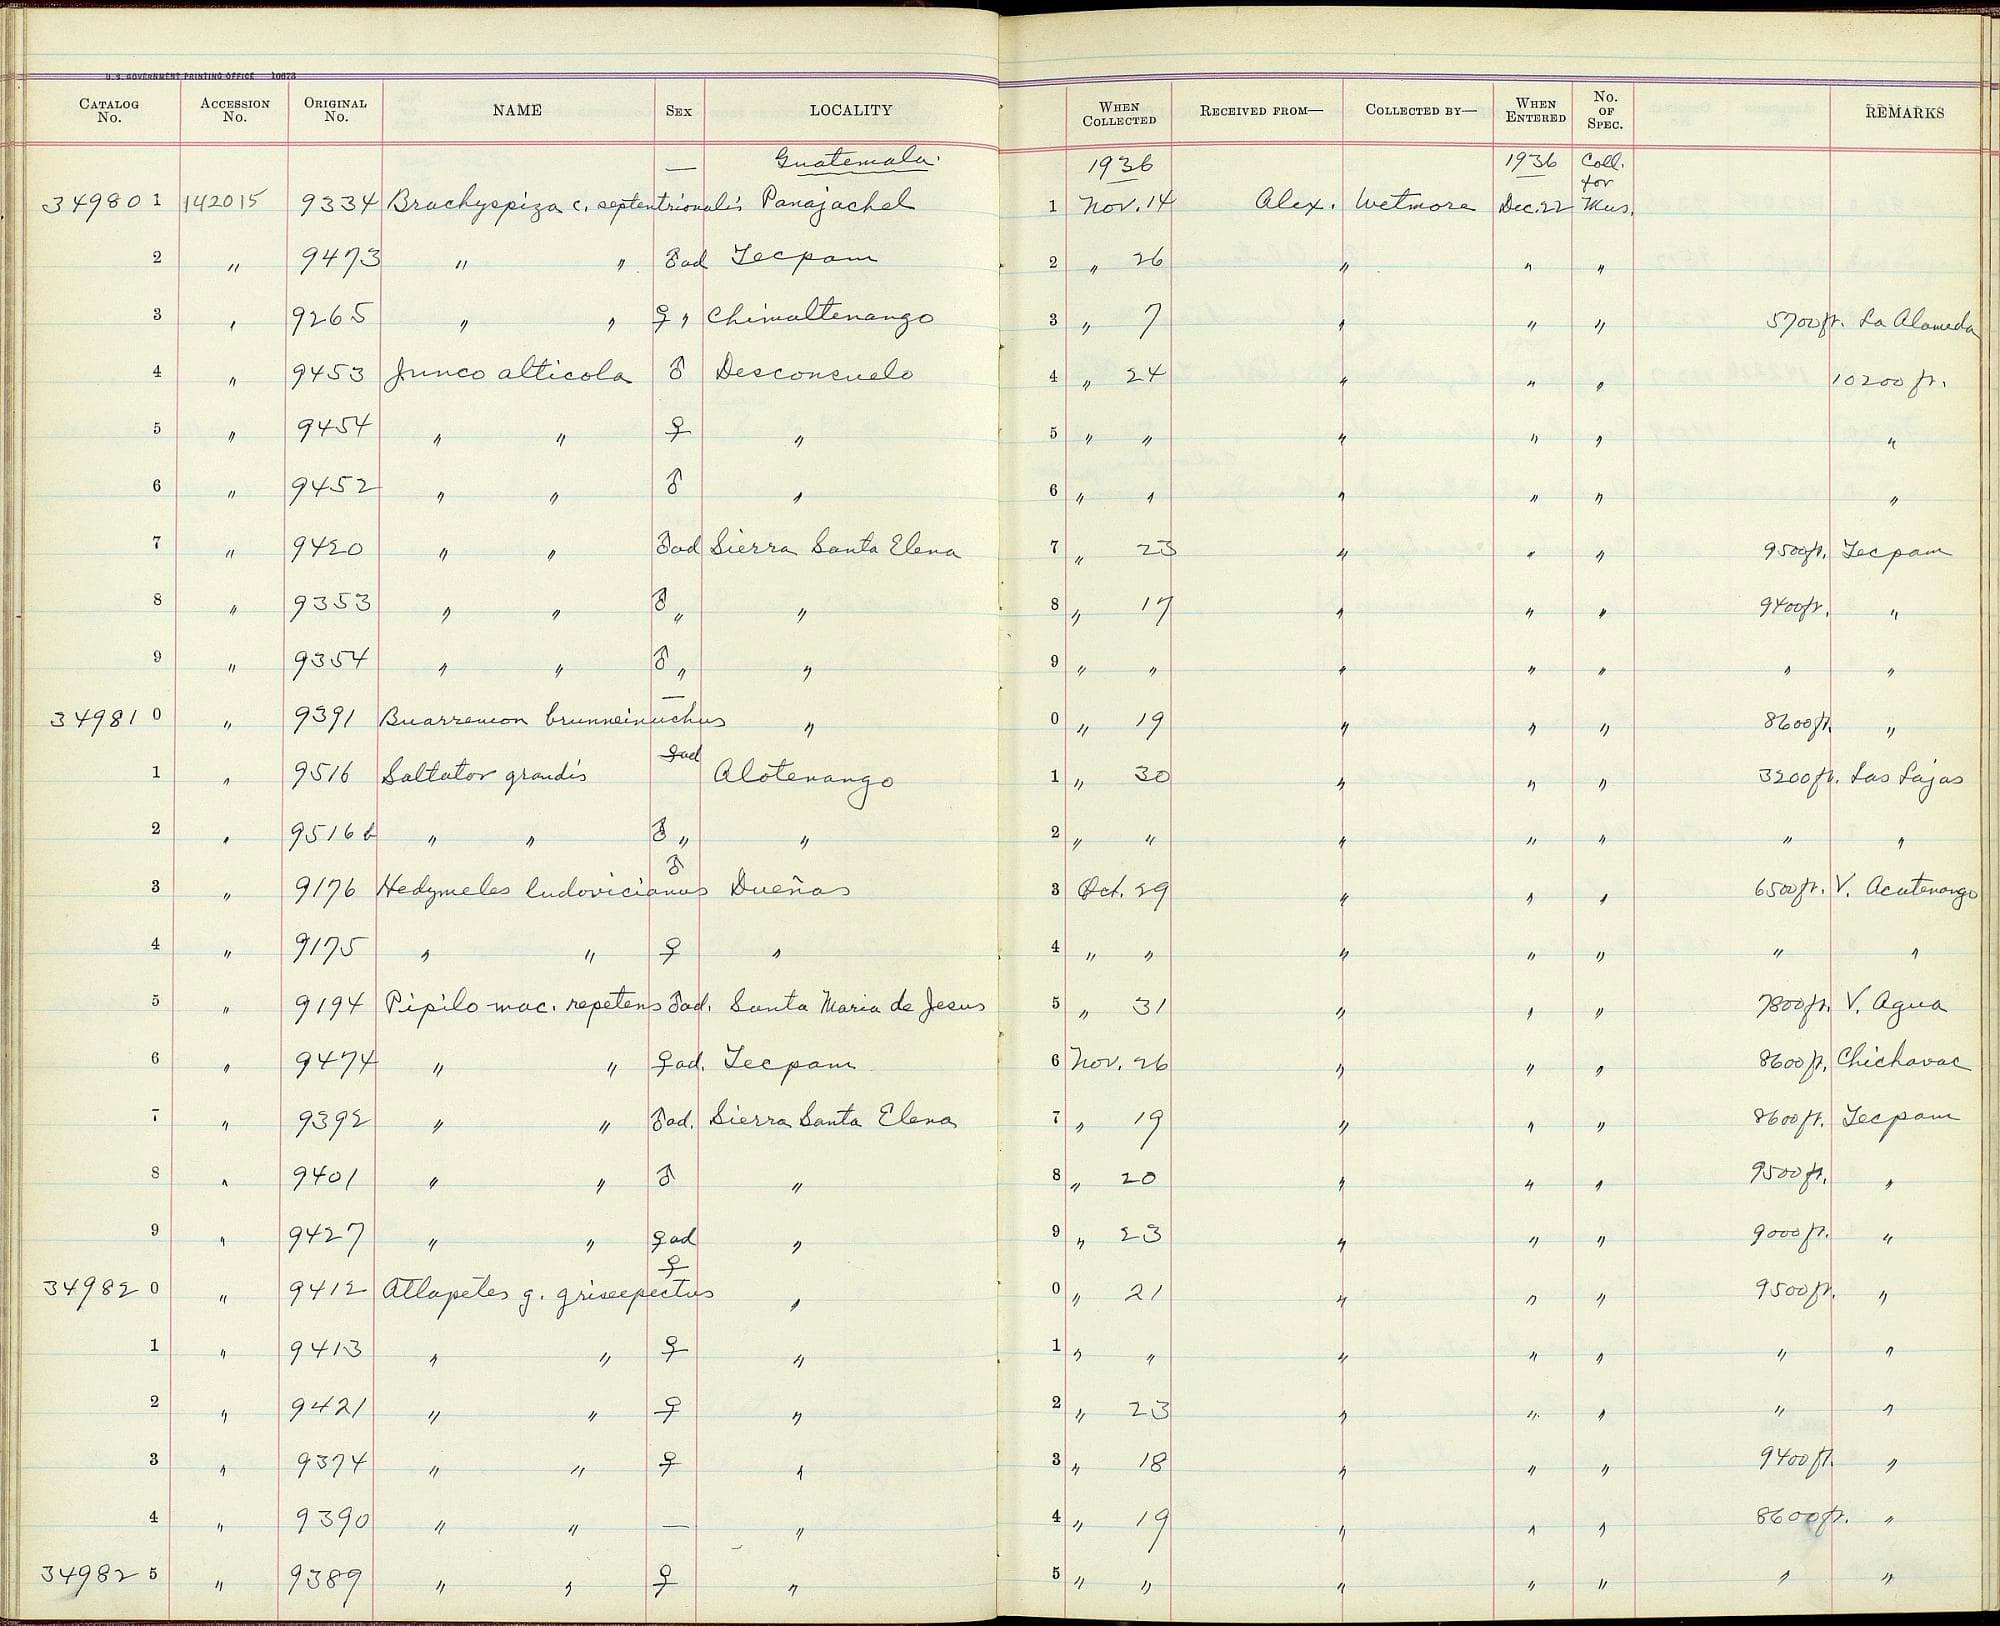 U.S. GOVERNMENT PRINTING OFFICE 10673
CATALOG No. ACCESSION No. ORIGINAL No. NAME SEX LOCALITY WHEN COLLECTED RECEIVED FROM— COLLECTED BY— WHEN ENTERED No. OF SPEC. REMARKS
— Guatemala. 1936 1936 Coll. for
349801 142015 9334 Brachyspiza c. septentrionalis Panajachel 1 Nov. 14 Alex. Wetmore Dec. 22 Mus.
2 " 9473 " " ♂ad Tecpam 2 " 26 " " "
3 " 9265 " " ♀ " Chimaltenango 3 " 7 " " " 5700ft. La Alameda
4 " 9453 Junco alticola ♂ Desconsuelo 4 " 24 " " " 10200 ft.
5 " 9454 " " ♀ " 5 " " " " " "
6 " 9452 " " ♂ " 6 " " " " " "
7 " 9420 " " ♂ad Sierra Santa Elena 7 " 23 " " " 9500ft. Tecpam
8 " 9353 " " ♂ " " 8 " 17 " " " 9400ft. "
9 " 9354 " " ♂ " " 9 " " " " " " "
349810 " 9391 Buarremon brunneinuchus — " 0 " 19 " " " 8600ft. "
1 " 9516 Saltator grandis ♀ad Alotenango 1 " 30 " " " 3200ft. Las Lajas
2 " 9516b " " ♂ " " 2 " " " " " " "
3 " 9176 Hedymeles ludovicianus ♂ Dueñas 3 Oct. 29 " " " 6500ft. V. Acatenango
4 " 9175 " " ♀ " 4 " " " " " " "
5 " 9194 Pipilo mac. repetens ♂ad. Santa Maria de Jesus 5 " 31 " " " 7800ft. V. Agua
6 " 9474 " " ♀ad. Tecpam 6 Nov. 26 " " " 8600ft. Chichavac
7 " 9392 " " ♂ad. Sierra Santa Elena 7 " 19 " " " 8600ft. Tecpam
8 " 9401 " " ♂ " 8 " 20 " " " 9500ft. "
9 " 9427 " " ♀ad " 9 " 23 " " " 9000ft. "
349820 " 9412 Atlapetes g. griseipectus ♀ " 0 " 21 " " " 9500ft. "
1 " 9413 " " ♀ " 1 " " " " " " "
2 " 9421 " " ♀ " 2 " 23 " " " " "
3 " 9374 " " ♀ " 3 " 18 " " " 9400ft. "
4 " 9390 " " — " 4 " 19 " " " 8600ft. "
349825 " 9389 " " ♀ " 5 " " " " " " "